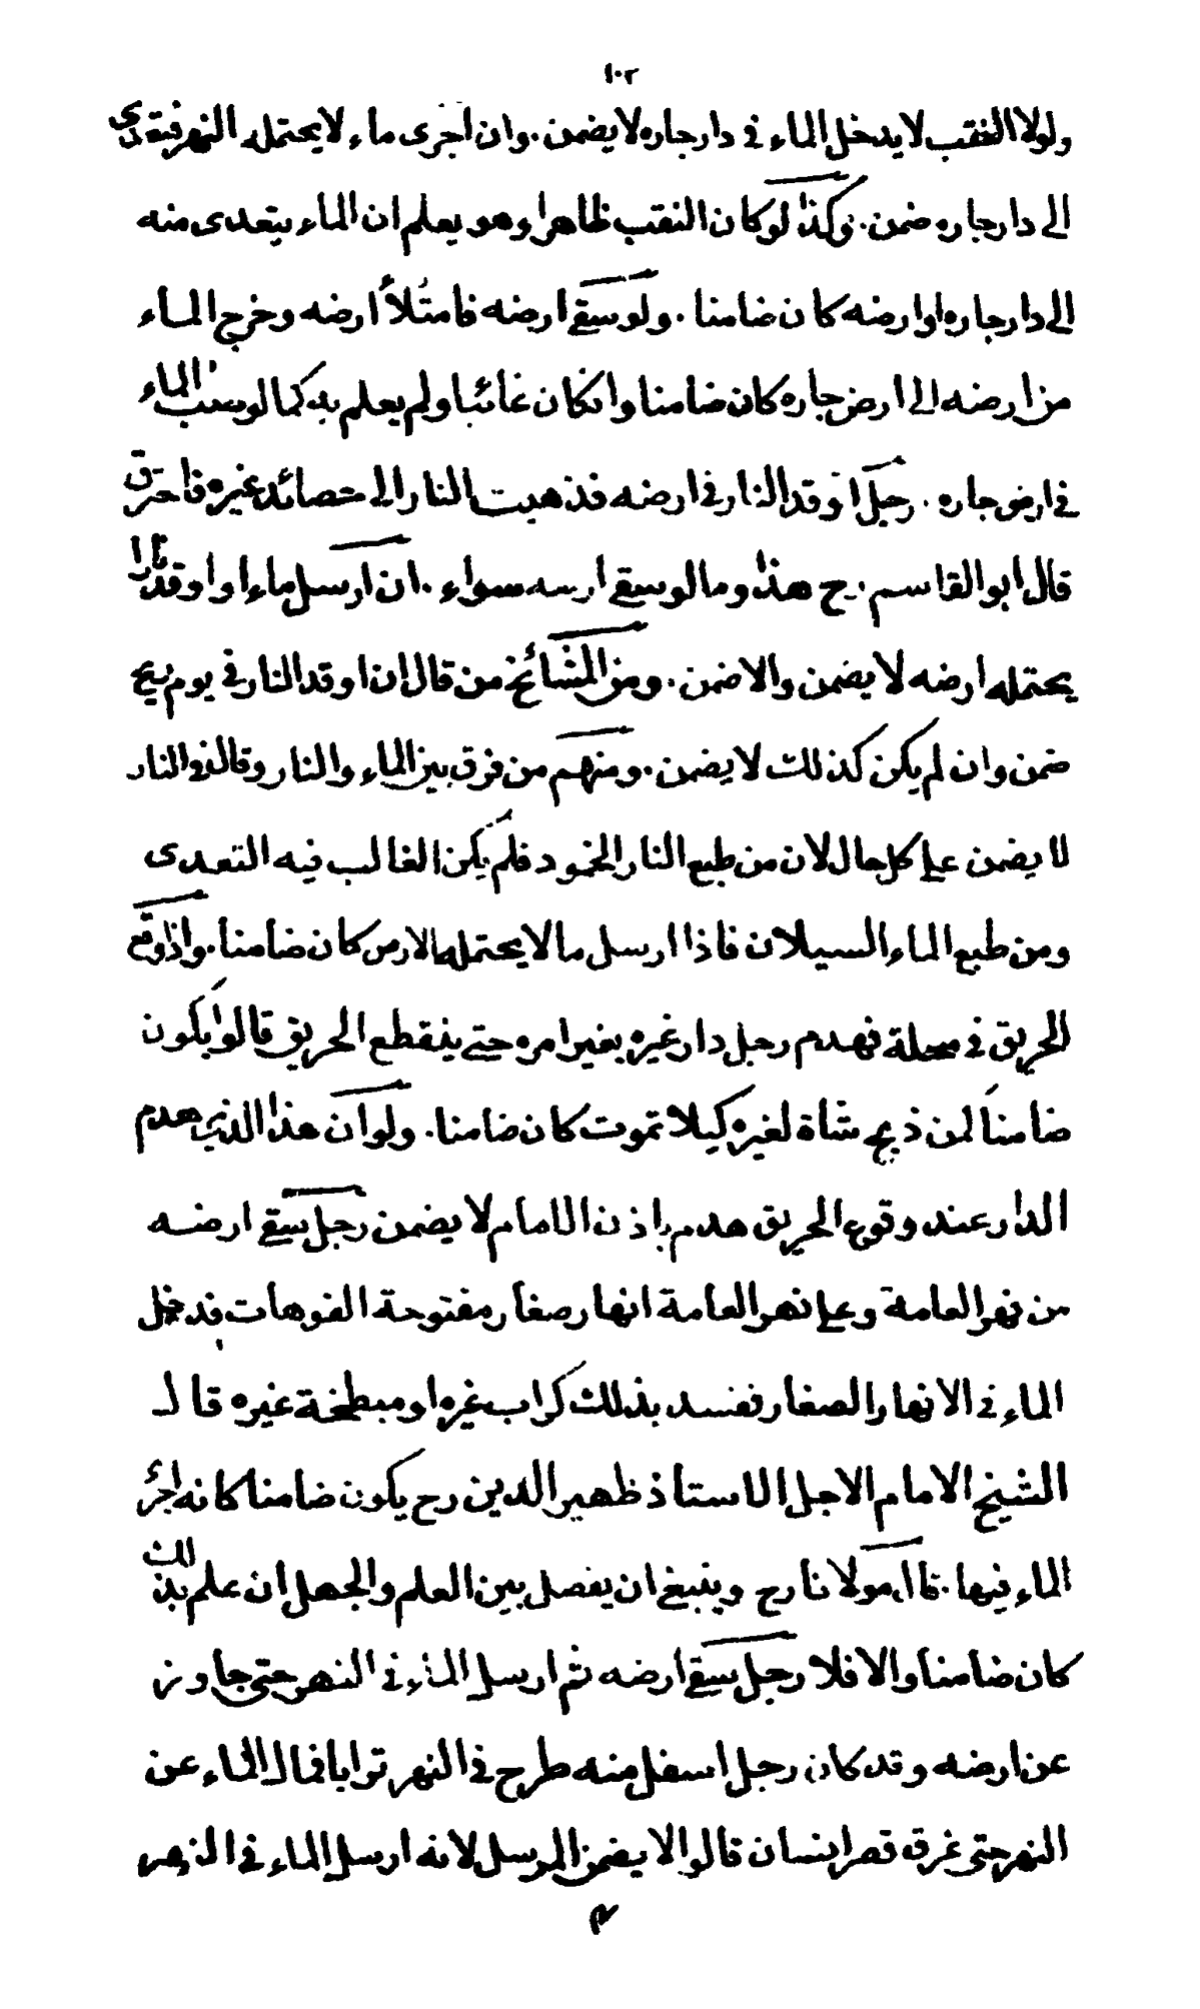 ١٠٢
ولولا النقب لا يدخل الماء في دار جاره لا يضمن . وان اجرى ماء لا يحتمله النهر فتعدى
الى دار جاره ضمن . وكذا لو كان النقب ظاهرا وهو يعلم ان الماء يتعدى منه
الى دار جاره او ارضه كان ضامنا . ولو سقى ارضه فامتلأ ارضه وخرج الماء
من ارضه الى ارض جاره كان ضامنا وانكان غائبا ولم يعلم به كما لو صب الماء
في ارض جاره . رجل اوقد النار في ارضه فذهبت النار الى حصائد غيره فاحترق
قال ابو القاسم رح هذا وما لو سقى ارضه سواء . ان ارسل ماء او اوقد نارا
يحتمله ارضه لا يضمن والا ضمن . ومن المشائخ من قال ان اوقد النار في يوم ريح
ضمن وان لم يكن كذلك لا يضمن . ومنهم من فرق بين الماء والنار وقال في النار
لا يضمن على كل حال لان من طبع النار الخمود فلم يكن الغالب فيه التعدى
ومن طبع الماء السيلان فاذا ارسل ما لا يحتمله الارض كان ضامنا . واذا وقع
الحريق في محلة فهدم رجل دار غيره بغير امره حتى ينقطع الحريق قالوا يكون
ضامنا لمن ذبح شاة لغيره كيلا تموت كان ضامنا . ولو ان هذا الذي هدم
الدار عند وقوع الحريق هدم باذن الامام لا يضمن رجل سقى ارضه
من نهر العامة وعلى نهر العامة انهار صغار مفتوحة الفوهات فدخل
الماء في الانهار الصغار ففسد بذلك كراب غيره او مبطخة غيره قال
الشيخ الامام الاجل الاستاذ ظهير الدين رح يكون ضامنا كانه اجرى
الماء فيها . قال مولانا رح وينبغي ان يفصل بين العلم والجهل ان علم بذلك
كان ضامنا والا فلا رجل سقى ارضه ثم ارسل الماء في النهر حتى جاوز
عن ارضه وقد كان رجل اسفل منه طرح في النهر ترابا فمال الماء عن
النهر حتى غرق قصر انسان قالوا لا يضمن المرسل لانه ارسل الماء في النهر